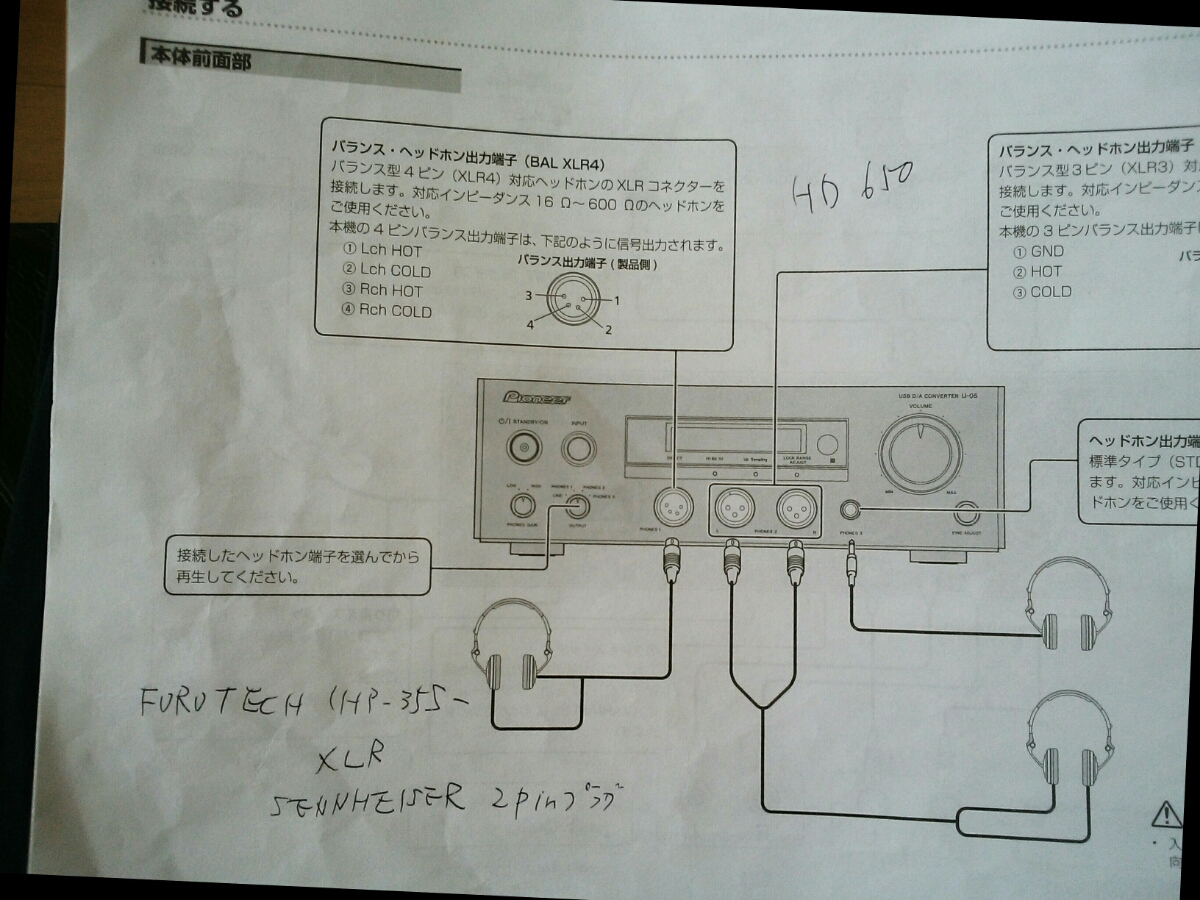 接続する
本体前面部
バランス・ヘッドホン出力端子（BAL XLR4）
バランス型4ピン（XLR4）対応ヘッドホンのXLRコネクターを
接続します。対応インピーダンス16 Ω～600 Ωのヘッドホンを
ご使用ください。
本機の4ピンバランス出力端子は、下記のように信号出力されます。
① Lch HOT
② Lch COLD
③ Rch HOT
④ Rch COLD
バランス出力端子(製品側)
3
1
4
2
HD 650
バランス・ヘッドホン出力端子
バランス型3ピン（XLR3）対
接続します。対応インピーダンス
ご使用ください。
本機の3ピンバランス出力端子
① GND
② HOT
③ COLD
バラ
Pioneer
USB D/A CONVERTER U-05
VOLUME
STANDBY/ON
INPUT
LOCK RANGE
ADJUST
MIN
MAX
PHONES 1
PHONES 2
LINE
PHONES 3
PHONES GAIN
OUTPUT
PHONES 1
L
PHONES 2
R
PHONES 3
FINE ADJUST
ヘッドホン出力端
標準タイプ（STD
ます。対応インピ
ドホンをご使用く
接続したヘッドホン端子を選んでから
再生してください。
FURUTECH iHP-35S-
XLR
SENNHEISER 2pinプラグ
・入